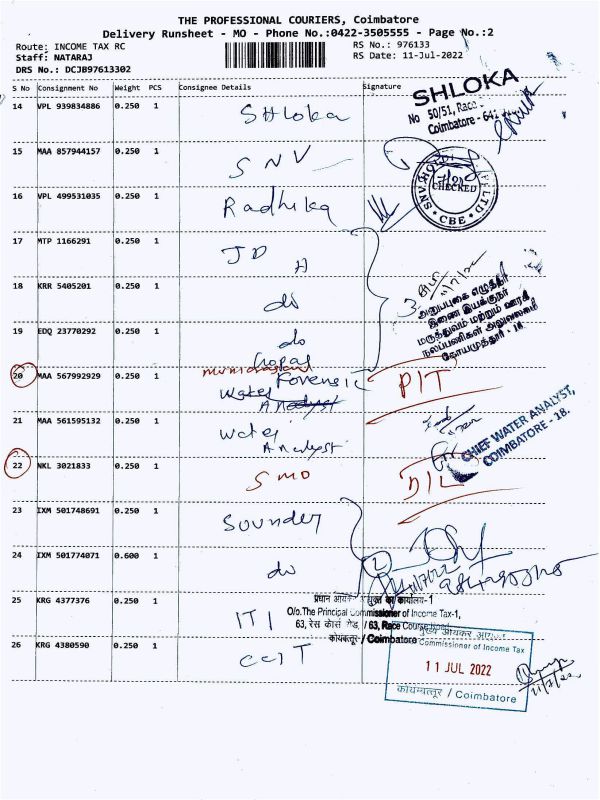 THE PROFESSIONAL COURIERS, Coimbatore
Delivery Runsheet - MO - Phone No.:0422-3505555 - Page No.:2
Route: INCOME TAX RC
RS No.: 976133
Staff: NATARAJ
RS Date: 11-Jul-2022
DRS No.: DCJB97613302
S No Consignment No Weight PCS Consignee Details Signature
14 VPL 939834886 0.250 1 Shloka
SHLOKA
No 50/51, Race
Coimbatore - 641
15 MAA 857944157 0.250 1 SNV
CHECKED
CBE
16 VPL 499531035 0.250 1 Radhika
17 MTP 1166291 0.250 1 JD
H
18 KRR 5405201 0.250 1 do
அனுப்புகை எழுத்தர்
இணை இயக்குநர்
மருத்துவம் மற்றும் ஊரக
நலப்பணிகள் அலுவலகம்
கோயமுத்தூர் - 18
19 EDQ 23770292 0.250 1 do
20 MAA 567992929 0.250 1 Forensic
Water Analyst
PIT
21 MAA 561595132 0.250 1 Water
Analyst
CHIEF WATER ANALYST,
COIMBATORE - 18.
22 NKL 3021833 0.250 1 SMO
D/L
23 IXM 501748691 0.250 1 Sounder
24 IXM 501774071 0.600 1 do
2
25 KRG 4377376 0.250 1 IT1
O/o.The Principal Commissioner of Income Tax-1,
63, रेस कोर्स रोड, / 63, Race Course Road,
कोयम्बत्तूर / Coimbatore
26 KRG 4380590 0.250 1 CCIT
मुख्य आयकर आयुक्त
Commissioner of Income Tax
11 JUL 2022
कोयम्बत्तूर / Coimbatore
11/7/22